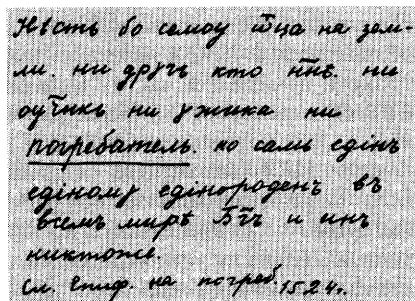 Нѣсть бо семоу ѿца на зем-
ли. ни другъ кто нн҃ѣ. ни
оуч҃икъ ни ужика ни
погребатель. но самъ едінъ
едіному едінороденъ въ
всемъ мирѣ Бг҃ъ и инъ
никтоже.
См. Епиф. на погреб. 1524г.